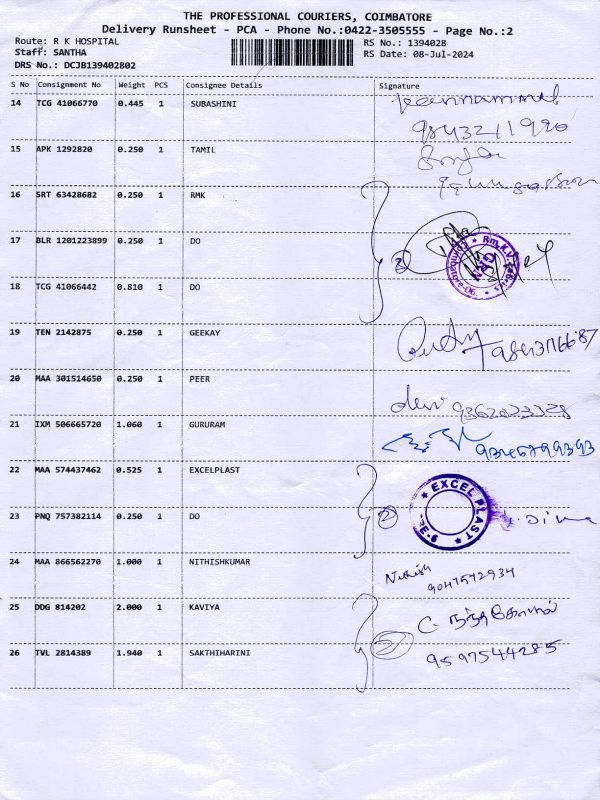 THE PROFESSIONAL COURIERS, COIMBATORE
Delivery Runsheet - PCA - Phone No.:0422-3505555 - Page No.:2
Route: R K HOSPITAL
Staff: SANTHA
DRS No.: DCJB139402802
RS No.: 1394028
RS Date: 08-Jul-2024
S No Consignment No Weight PCS Consignee Details Signature
14 TCG 41066770 0.445 1 SUBASHINI
9843211990
15 APK 1292820 0.250 1 TAMIL
16 SRT 63428682 0.250 1 RMK
17 BLR 1201223899 0.250 1 DO
2
18 TCG 41066442 0.810 1 DO
19 TEN 2142875 0.250 1 GEEKAY
20 MAA 301514650 0.250 1 PEER
devi 9362023328
21 IXM 506665720 1.060 1 GURURAM
22 MAA 574437462 0.525 1 EXCELPLAST
EXCEL PLAST
23 PNQ 757382114 0.250 1 DO
2
24 MAA 866562270 1.000 1 NITHISHKUMAR
Nithish
9047572934
25 DDG 814202 2.000 1 KAVIYA
2
26 TVL 2814389 1.940 1 SAKTHIHARINI
9597544285